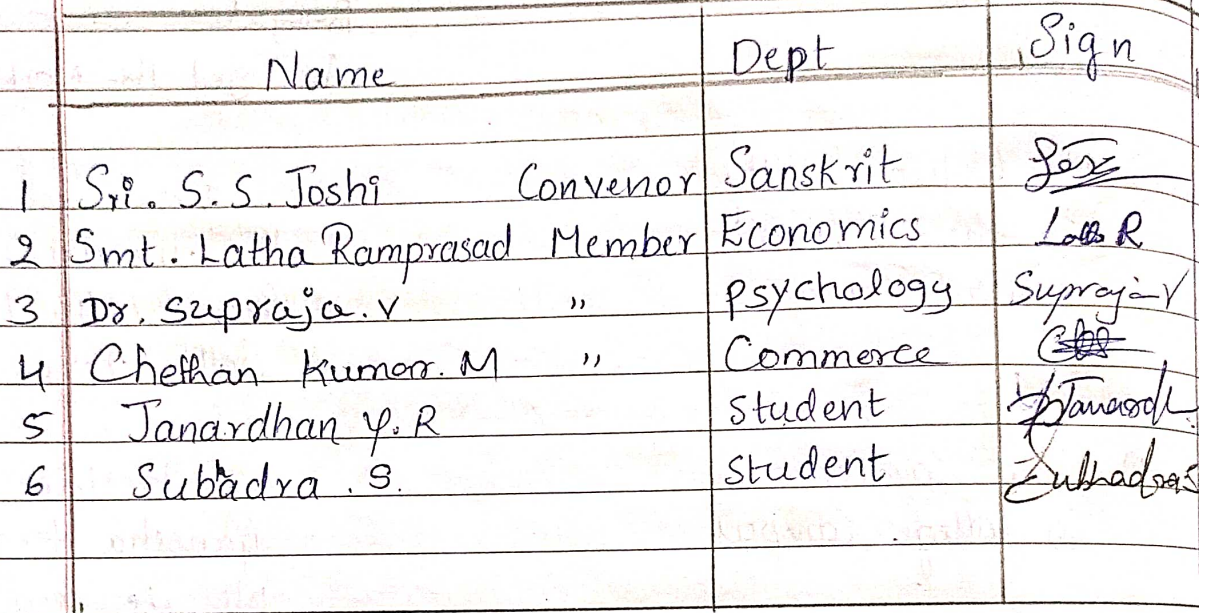 Name Dept Sign
1 Sri. S. S. Joshi Convenor Sanskrit
2 Smt. Latha Ramprasad Member Economics Latha R
3 Dr. Supraja. V. " Psychology Supraja V
4 Chethan Kumar. M " Commerce
5 Janardhan Y. R Student Janardh
6 Subhadra . S. Student Subhadra S